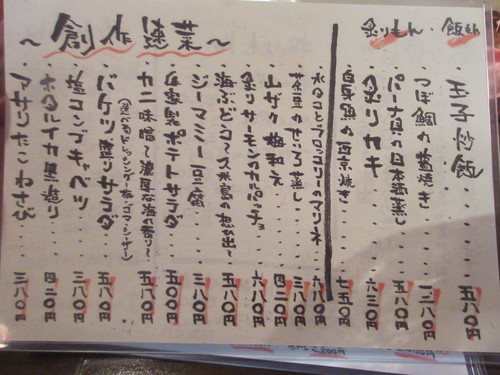 飯もん
玉子炒飯 五八〇円
釣りもん
つぼ鯛の塩焼き 一二八〇円
パーナ貝の日本酒蒸し 五八〇円
釣りカキ 六三〇円
七五〇円
〜創作遊菜〜
水タコとブロッコリーのマリネ 六八〇円
茶豆のせいろ蒸し 三八〇円
山ザク梅和え 四二〇円
釣りサーモンのカルパッチョ 六八〇円
海ぶどう〜久米島の想ひ出〜 五八〇円
ジーマミー豆腐 三八〇円
自家製ポテトサラダ 五〇〇円
カニ味噌〜濃厚な海の香り〜 五八〇円
バケツ盛りサラダ 五八〇円
塩コンブキャベツ 三八〇円
ホタルイカ黒造り 四二〇円
マサリたこわさび 三八〇円